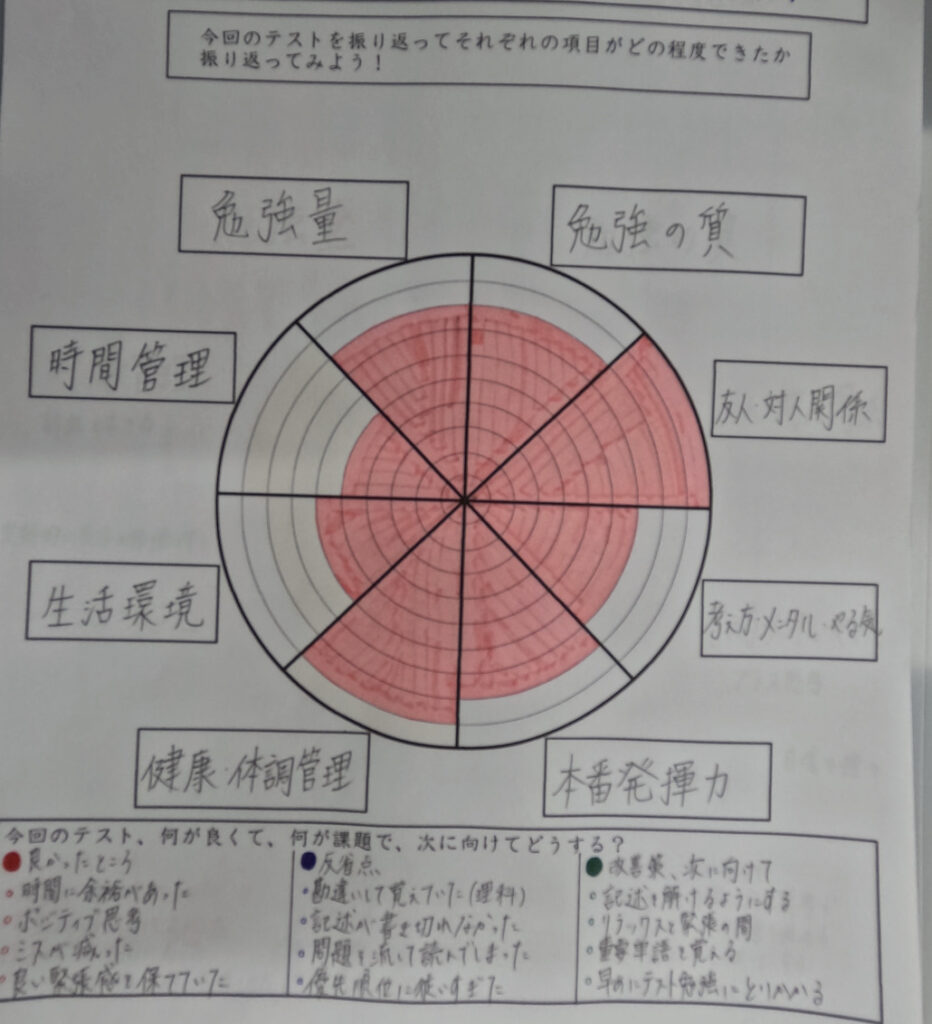 今回のテストを振り返ってそれぞれの項目がどの程度できたか
振り返ってみよう！
勉強量
勉強の質
時間管理
友人・対人関係
生活環境
考え方・メンタル・やる気
健康・体調管理
本番発揮力
今回のテスト、何が良くて、何が課題で、次に向けてどうする？
良かったところ
・時間に余裕があった
・ポジティブ思考
・ミスが減った
・良い緊張感を保てていた
反省点
・勘違いして覚えていた(理科)
・記述が書き切れなかった
・問題を流して読んでしまった
・優先順位に従いすぎた
改善策、次に向けて
・記述を解けるようにする
・リラックスと緊張の間
・重要単語を覚える
・早めにテスト勉強にとりかかる